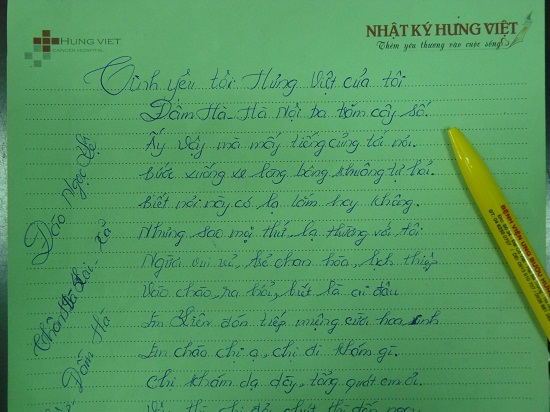 HUNG VIET
CANCER HOSPITAL
NHẬT KÝ HƯNG VIỆT
Thêm yêu thương vào cuộc sống
Tình yêu tôi Hưng Việt của tôi
Đầm Hà - Hà Nội ba trăm cây số.
Ấy vậy mà mấy tiếng cũng tới nơi.
Bước xuống xe lòng bâng khuâng tự hỏi.
Biết nơi này có lạ lẫm hay không.
Nhưng sao mọi thứ, lạ thường với tôi
Người vui vẻ, kẻ chan hòa, lịch thiệp
Vào chào, ra hỏi, biết là ở đâu
Em đón tiếp miệng cười hoa xinh
Em chào chị ạ, chị đi khám gì.
Chị khám dạ dày, tổng quát em ơi.
Đào Ngọc Hệ
Thôn Hải - Xã
Đầm Hà
BỆNH VIỆN UNG BƯỚU